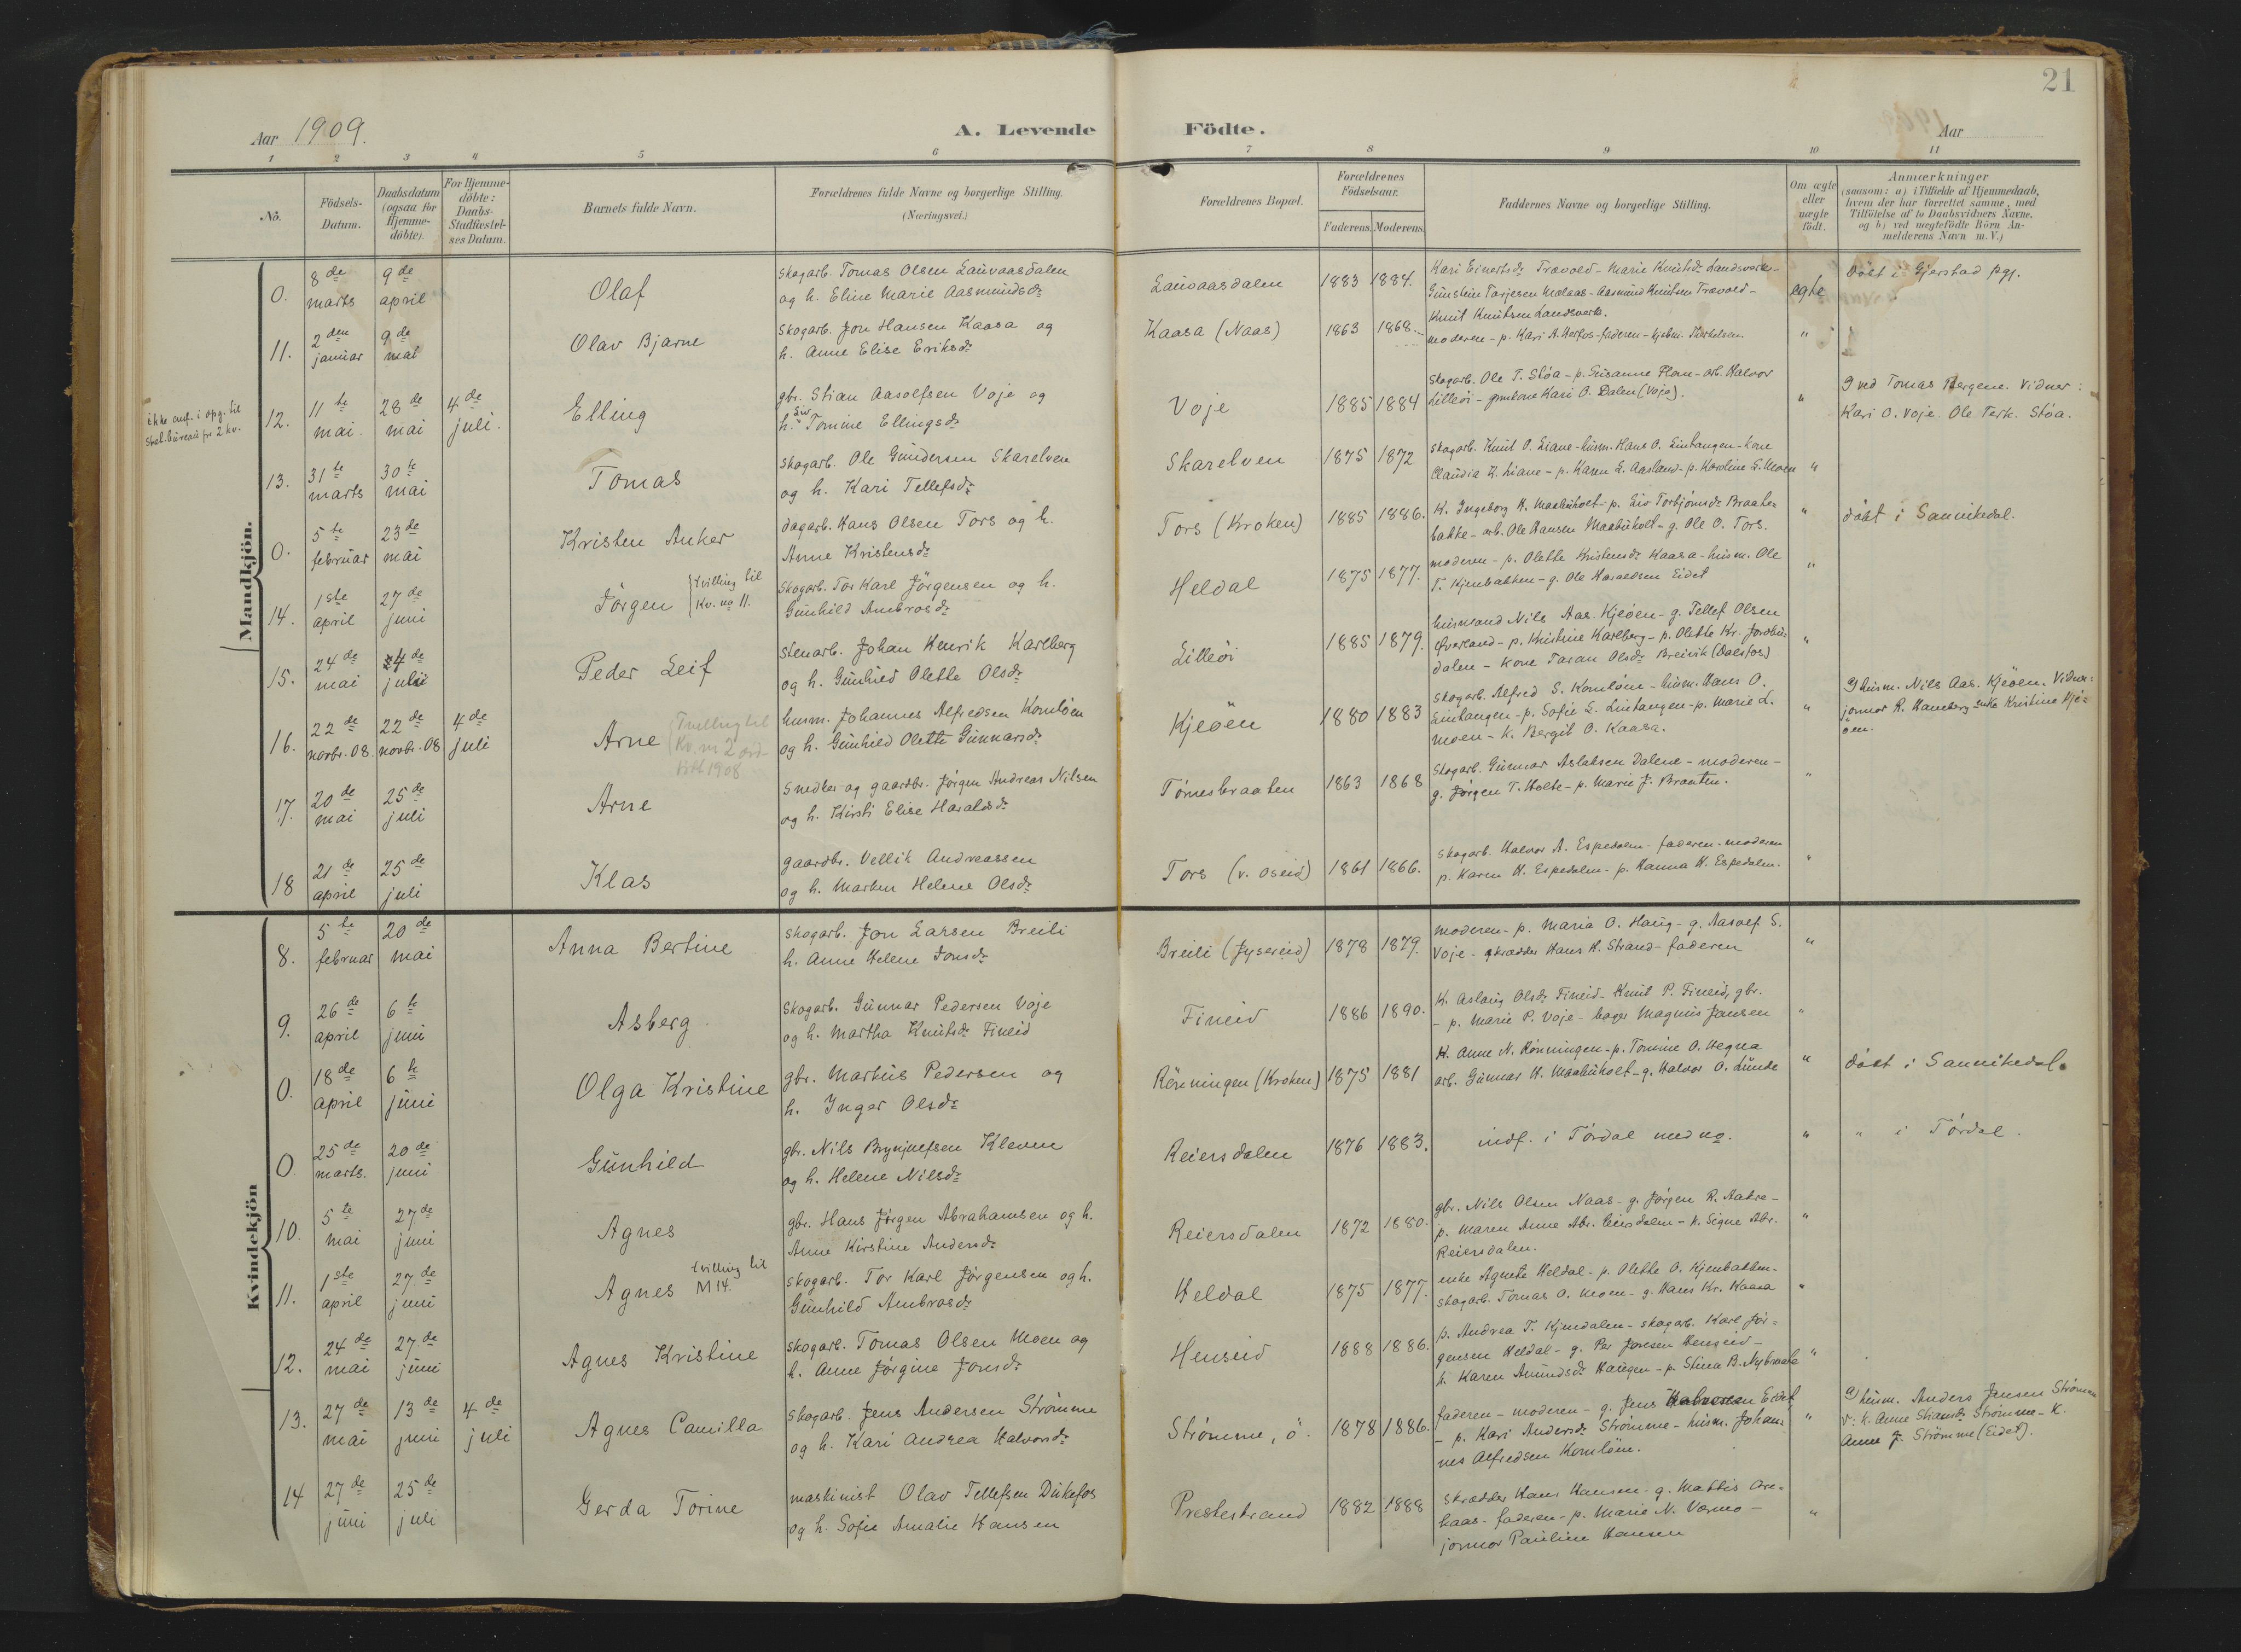 21
Aar 1909.
A. Levende Födte.
Aar
1 2 3 4 5 6 7 8 9 10 11
No.
Födsels-Datum.
Daabsdatum (ogsaa for Hjemme-döbte).
For Hjemme-döbte: Daabs-Stadfæstel-ses Datum.
Barnets fulde Navn.
Forældrenes fulde Navne og borgerlige Stilling.
(Næringsvei.)
Forældrenes Bopæl.
Forældrenes Födselsaar.
Faderens. Moderens.
Faddernes Navne og borgerlige Stilling.
Om ægte eller uægte födt.
Anmærkninger
(saasom: a) i Tilfælde af Hjemmedaab,
hvem der har forrettet samme, med
Tilföielse af to Daabsvidners Navne.
og b) ved uægtefödte Börn An-
melderens Navn m. V.)
Mandkjön.
0. 8de marts 9de april Olaf
skogarb. Tomas Olsen Lauvaasdalen
og h. Eline Marie Aasmundsdr
Lauvaasdalen 1883 1884.
Kari Einertsdr Trævold - Marie Knutsdr Landsverk -
Gunstein Torjesen Molaas - Aasmund Knutsen Trævold -
Knut Knutsen Landsverk.
egte
döbt i Gjerstad pgj.
11. 2den januar 9de mai Olav Bjarne
Skogarb. Jon Hansen Kaasa og
h. Anne Elise Eriksdr
Kaasa (Naas) 1863 1868.
moderen - p. Kari A. - faderen -
"
ikke anf. i opg. til
stat.bureau for 2 kv.
12. 11te mai. 28de mai 4de juli. Elling
gbr. Stian Aasolfsen Voje og
h. Siv Tomine Ellingsdr
Voje 1885 1884
Skogarb. Ole T. Stöa - p. Susanne Plan - arb. Halvor
Lilleöi - Kari O. Dalen (Voje).
"
ved Tomas Bergene. Vidner:
Kari O. Voje. Ole Terk. Stöa.
13. 31te marts 30te mai Tomas
skogarb. Ole Gundersen Skarelven
og h. Kari Tellefsdr
Skarelven 1875 1872
skogarb. Knut O. Liane - husm. Hans O. Lintangen - kone
Claudia K. Liane - p. Karen L. Aasland - p. Karoline G. Moen
"
0. 5te februar 23de mai Kristen Anker
dagarb. Hans Olsen Tors og h.
Anne Kristensdr
Tors (Kroken) 1885 1886.
K. Ingeborg H. Maabuholt - p. Liv Torbjörnsdr Braate-
bakke - arb. Ole Hansen Maabuholt - g. Ole O. Tors.
"
döbt i Sannikedal.
14. 1ste april 27de juni Jörgen
tvilling til
Kv. no 11.
Skogarb. Tor Karl Jörgensen og h.
Gunhild Ambrosdr
Heldal 1875 1877.
moderen - p. Olette Kristensdr Kaasa - husm. Ole
T. Kjenbakken - g. Ole Haraldsen Eidet
"
15. 24de mai 4de juli Peder Leif
stenarb. Johan Henrik Karlberg
og h. Gunhild Olette Olsdr
Lilleöi 1885 1879.
husmand Nils Aas. Kjeöen - g. Tellef Olsen
Överland - p. Kristine Karlberg - p. Olette Kr.
dalen - kone Taran Olsdr Breivik (Dalsfos)
"
16. 22de novbr. 08. 22de novbr. 08 4de juli Arne
Tvilling til
Kv. no 2
1908
husm. Johannes Alfredsen Komlöen
og h. Gunhild Olette Gunnarsdr
Kjeöen 1880 1883
skogarb. Alfred S. Komlöen - husm. Hans O.
Lintangen - p. Sofie L. Lintangen - p. Marie L.
Moen - k. Bergit O. Kaasa.
"
husm. Nils Aas. Kjeöen. Vidner:
jormor R. Hamberg enke Kristine Kjö-
öen.
17. 20de mai 25de juli Arne
Snedker og gaardbr. Jörgen Andreas Nilsen
og h. Kirsti Elise Haraldsdr
Törnesbraaten 1863 1868
Skogarb. Gunnar Aslaksen Dalene - moderen -
g. Jörgen T. Holte - p. Marie J. Braaten.
"
18 21de april 25de juli Klas
gaardbr. Vellik Andreassen
og h. Marken Helene Olsdr
Tors (v. Oseid) 1861 1866.
skogarb. Halvor A. Espedalen - faderen - moderen
p. Karen H. Espedalen - p. Hanna H. Espedalen.
"
Kvindekjön
8. 5te februar 20de mai Anna Bertine
skogarb. Jon Larsen Breili
h. Anne Helene Jonsdr
Breili (Jysereid) 1878 1879.
moderen - p. Maria O. Haug - g. Aasolf S.
Voje - skrædder Hans H. Strand - faderen
"
9. 26de april 6te juni Asberg.
Skogarb. Gunnar Pedersen Voje
og h. Martha Knutsdr Fineid
Fineid 1886 1890.
K. Aslaug Olsdr Fineid - Knut P. Fineid, gbr.
- p. Marie P. Voje - bager Magnus Jansen
"
0. 18de april 6te juni Olga Kristine
gbr. Markus Pedersen og
h. Inger Olsdr
Rönningen (Kroken) 1875 1881
K. Anne N. Rönningen - p. Tomine O. Hegna
arb. Gunnar H. Maabuholt - g. Halvor O. Lunde
"
döbt i Sannikedal.
0. 25de marts. 20de juni Gunhild
gbr. Nils Brynjulfsen Kleven
og h. Helene Nilsdr
Reiersdalen 1876 1883.
indf. i Tördal med no.
"
" i Tördal.
10. 5te mai 27de juni Agnes
gbr. Hans Jörgen Abrahamsen og h.
Anne Kirstine Andersdr
Reiersdalen 1872 1880.
gbr. Nils Olsen Naas - g. Jörgen R. Aatre -
p. Maren Anne Abr. Reiersdalen - k. Signe Abr.
Reiersdalen.
"
11. 1ste april 27.de juni Agnes
tvilling til
M 14.
skogarb. Tor Karl Jörgensen og h.
Gunhild Ambrosdr
Heldal 1875 1877.
enke Agnete Heldal - p. Olette O. Kjenbakken -
skogarb. Tomas O. Moen - g. Hans Kr. Kaasa
"
12. 24de mai 27de juni Agnes Kristine
skogarb. Tomas Olsen Moen og
h. Anne Jörgine Jonsdr
Henseid 1888 1886.
p. Andrea T. Kjendalen - skogarb. Karl Jör-
gensen Heldal - g. Per Jonsen Henseid -
k. Karen Amundsdr Haugen - p. Stina B. Nybraate
"
13. 27de mai 13de juni 4de juli Agnes Camilla
skogarb. Jens Andersen Strömme
og h. Kari Andrea Halvorsdr
Strömme, ö. 1878 1886.
faderen - moderen - g. Jens Halvorsen Eidet
- p. Kari Andersdr Strömme - husm. Johan-
nes Alfredsen Komlöen.
"
a) husm. Anders Jensen Strömme
V: k. Anne Stiansdr Strömme - K.
Anne J. Strömme (Eidet).
14 27de juni 25de juli Gerda Torine
maskinist Olav Tellefsen Dukefos
og h. Sofie Amalie Hansen
Prestestrand 1882 1888
skrædder Hans Hansen - g. Mattis Are-
kaas - faderen - p. Marie N. Værmo -
jormor Pauline Hansen
"